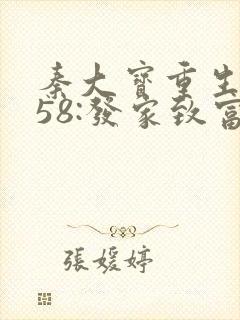 秦大寶重生
58:發家致富
張媛婷